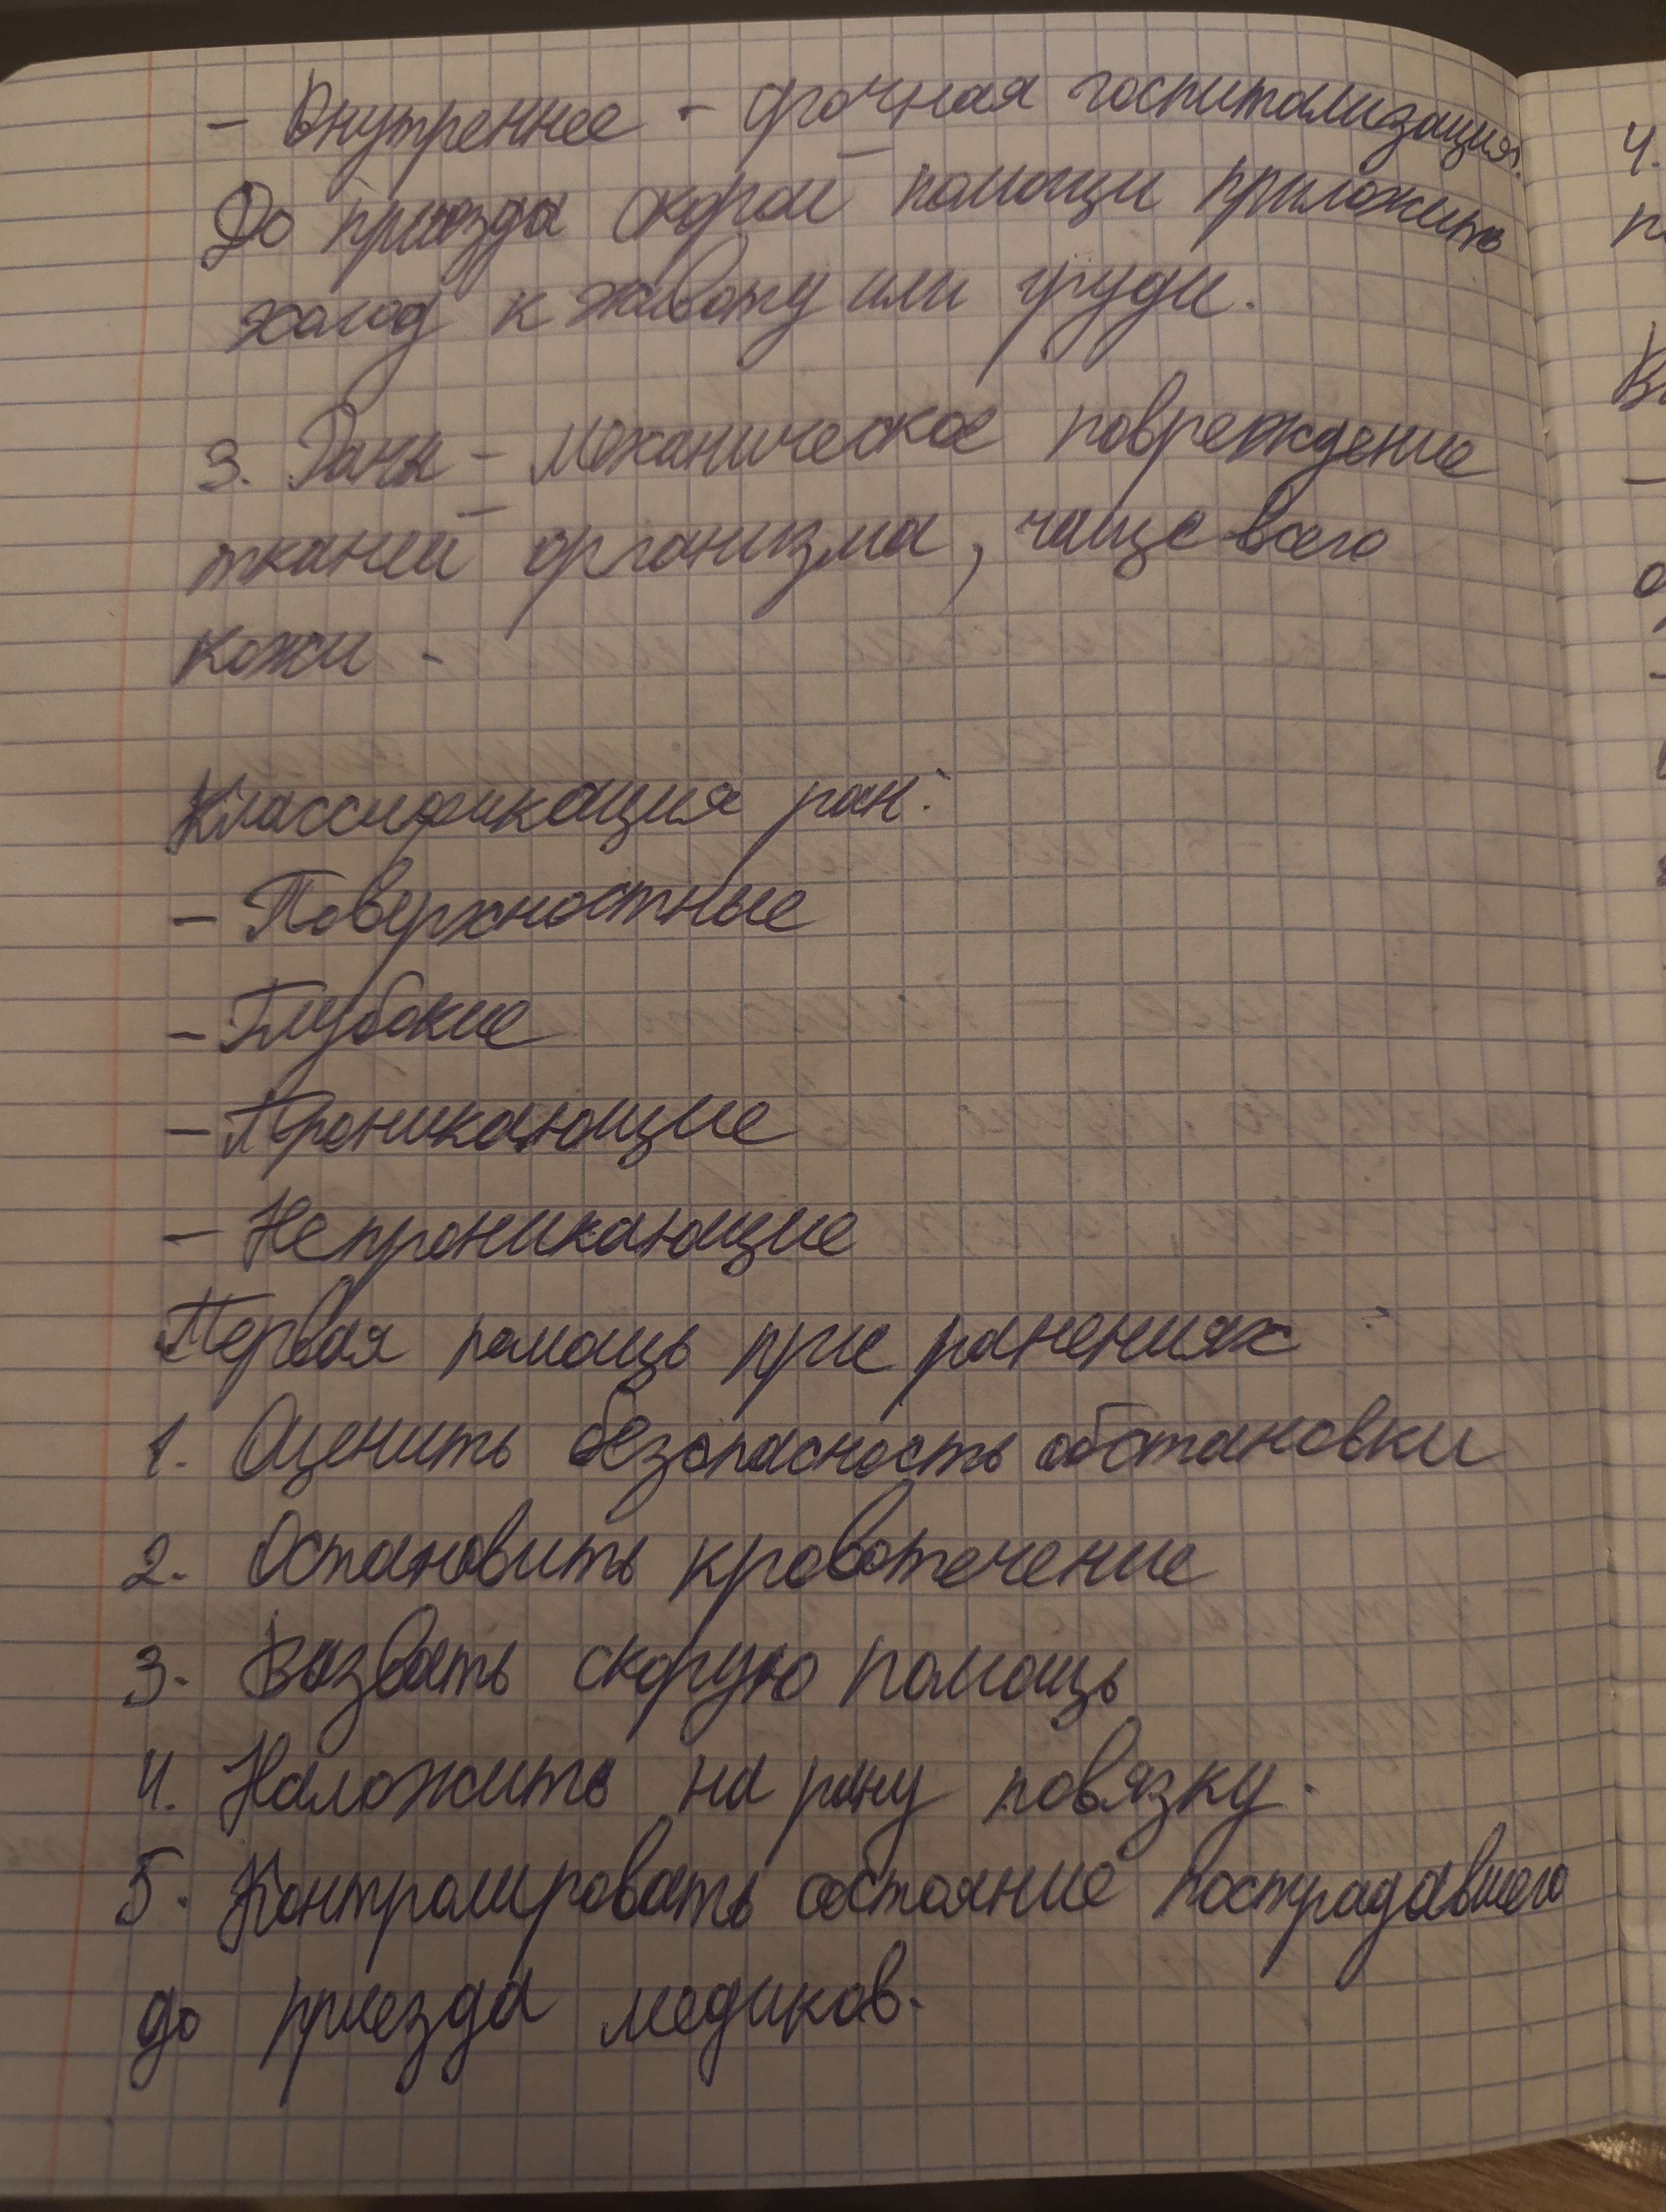 - Внутреннее - срочная госпитализация.
До приезда скорой помощи приложить
холод к животу или груди.
3. Раны - механическое повреждение
тканей организма, чаще всего
кожи -
Классификация ран:
- Поверхностные
- Глубокие
- Проникающие
- Непроникающие
Первая помощь при ранениях:
1. Оценить безопасность обстановки
2. Остановить кровотечение
3. Вызвать скорую помощь
4. Наложить на рану повязку.
5. Контролировать состояние пострадавшего
до приезда медиков.
4.